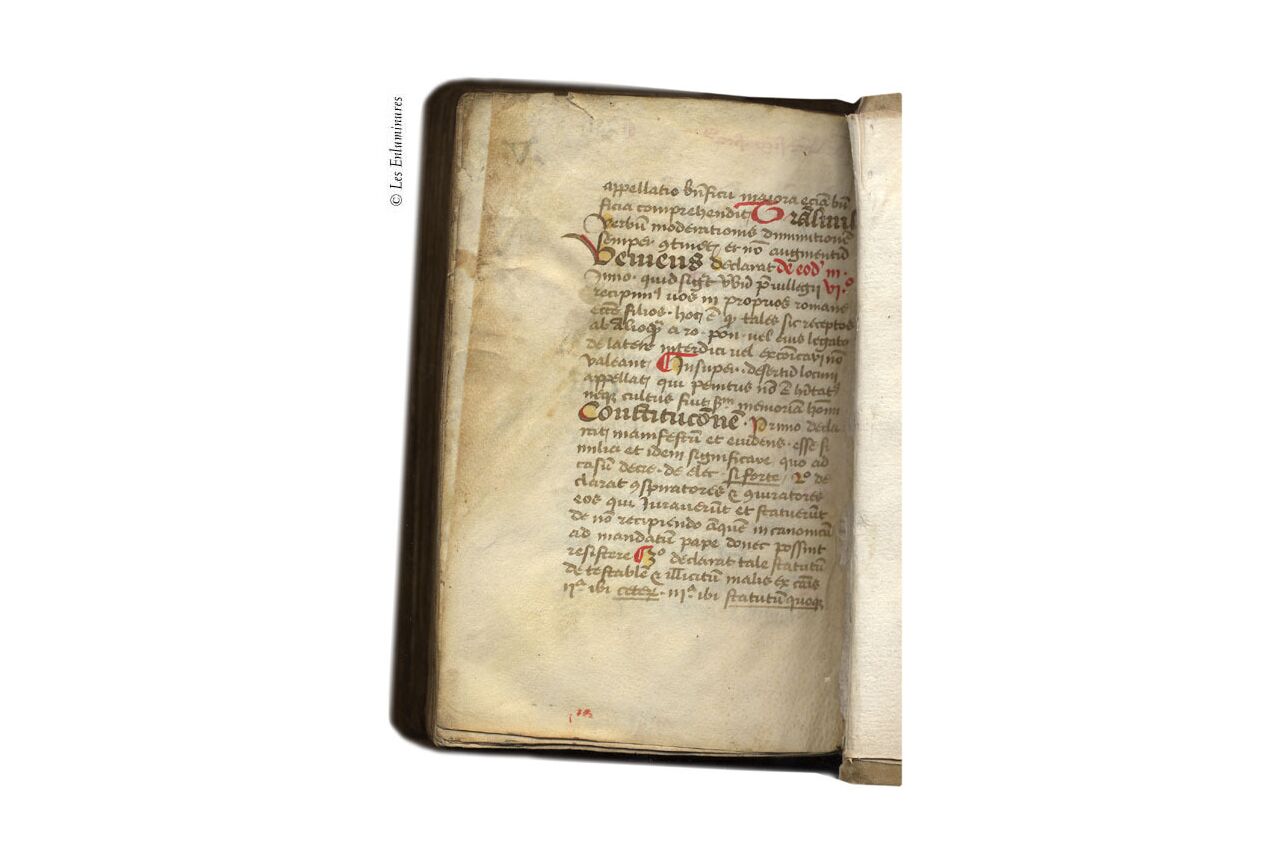 © Les Enluminures
appellatio bñficii maiora eciã bñ
ficia comprehendit Trãsmis
Verbũ moderationis diminutionẽ
semper 9tinet et nõ augmentũ
Veniens declarat de eod' in
vi.º
recipim9 vos in proprios romane
ecce filios. hoc ẽ qp tales sic receptos
ab alioqz a ro. pon. vel eius legato
de latere interdici vel excõicari nõ
valeant ¶ Insuper. desertũ locum
appellat qui penitus
neqz cultus fuit memoriã homi
Constitucõnẽ. Primo decla
rat manifestũ et euidens. esse si
milia et idem significare quo ad
casũ decre. de elec. si forte / 2º de
clarat 9spiratores & 9iuratores
eos qui iurauerũt et statuerũt
de nõ recipiendo aliquem in canonicũ
ad mandatũ pape donec possint
resistere ¶ 3º declarat tale statutũ
detestabile & illicitũ malis ex cãis
ii.ª ibi ceter. iii.ª ibi statutũ quoqz